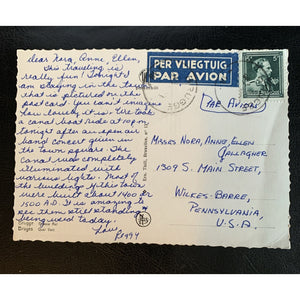 Dear Nora, Anne, Ellen,
This traveling is
really fun! Tonight I
am staying in the town
that is pictured on this
post card. You can't imagine
how lovely it is. We took
a canal boat ride at
tonight after an open air
band concert given in
the town square. The
canal was completely
illuminated with
various lights. Most of
the buildings of this town
were built about 1400 to
1500 A.D. It is amazing to
see them still standing &
being used today.
Love
Peggy
PER VLIEGTUIG
PAR AVION
PAR AVION
Misses Nora, Anne, Ellen
Gallagher
1309 S. MAIN STREET,
WILKES-BARRE,
PENNSYLVANIA,
U.S.A.
Brugge
Bruges